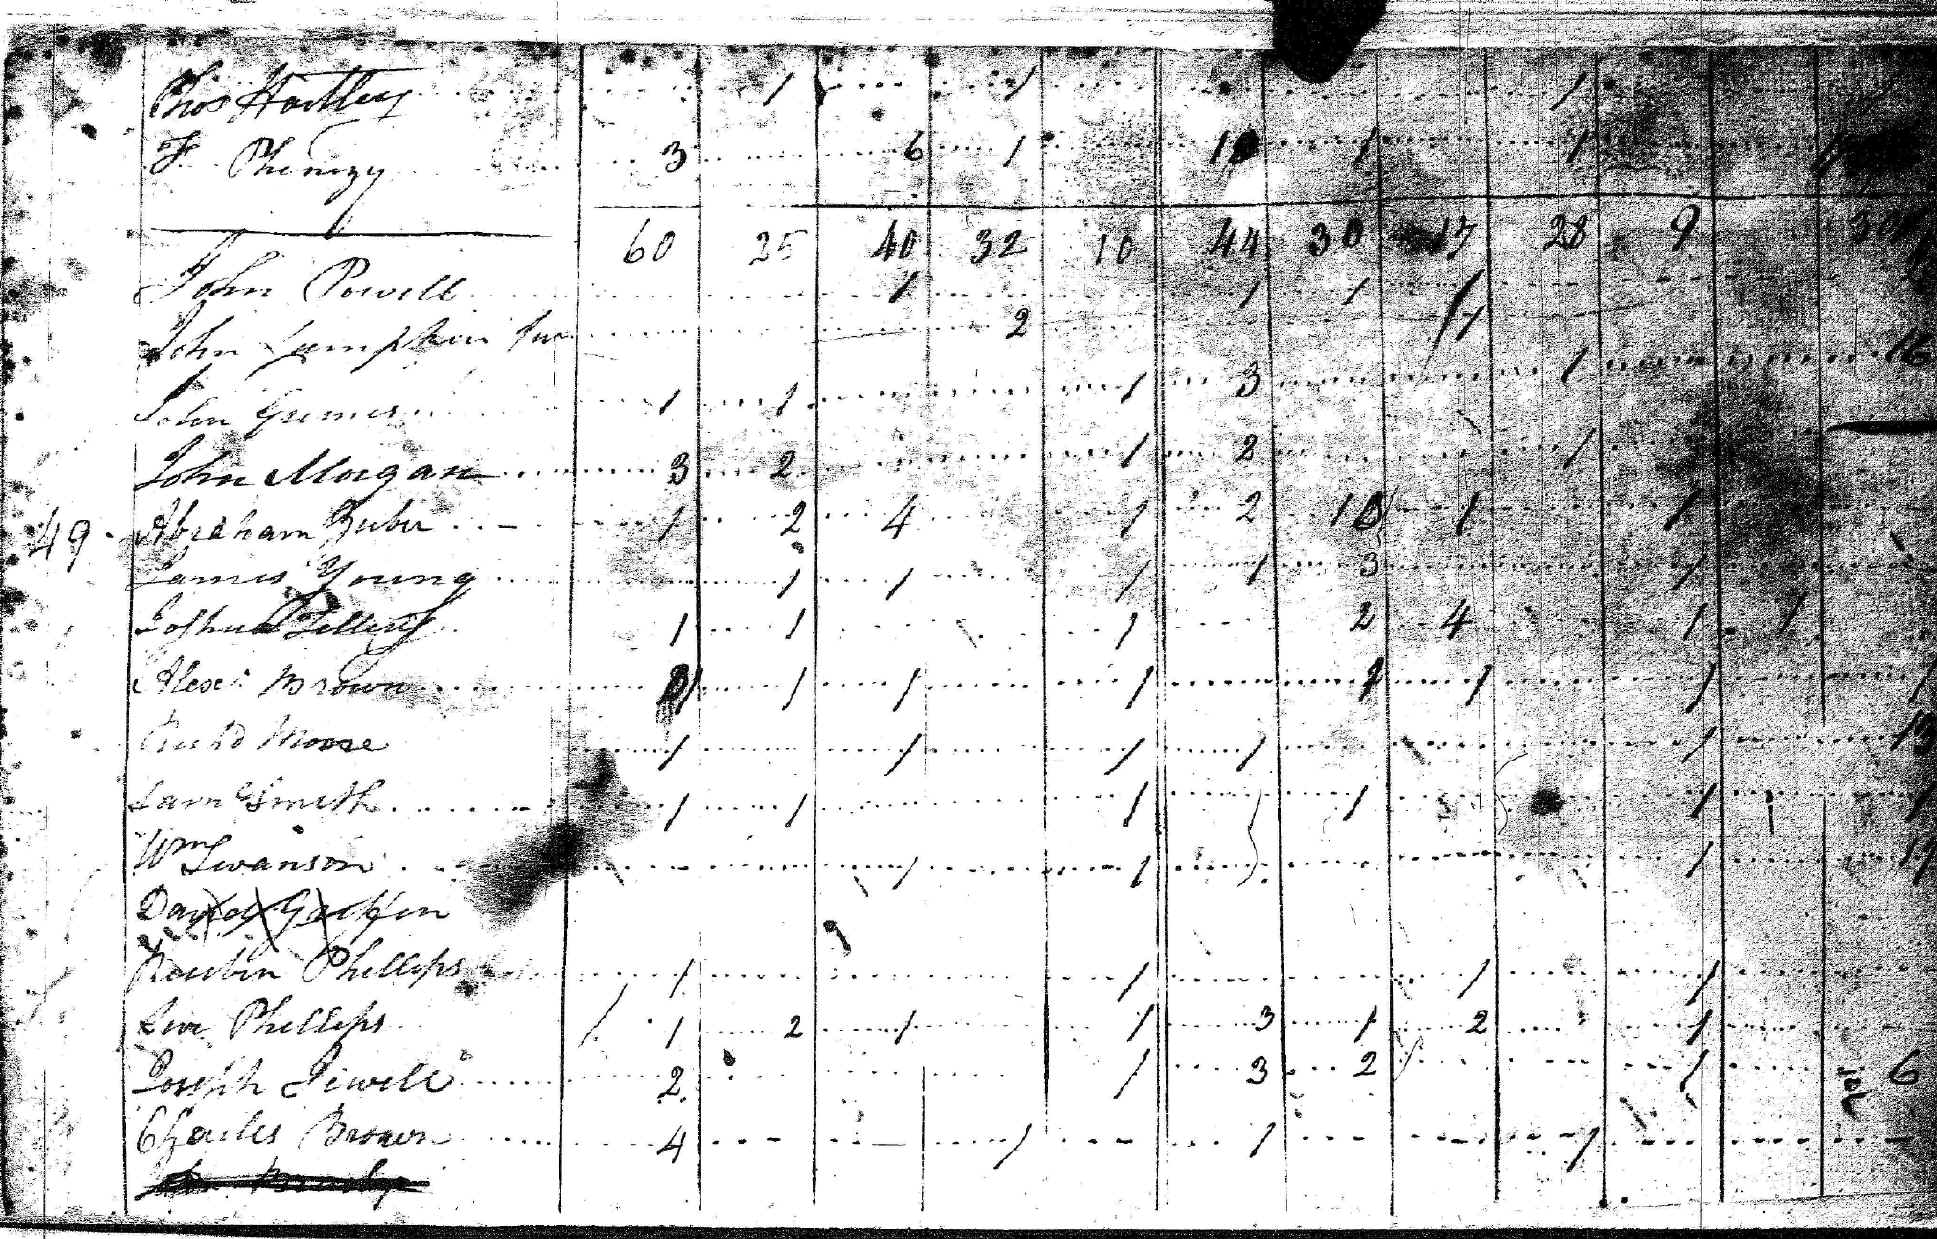 Thos Hartley 1 1 1
F Phinizy 3 6 1 1 1
60 25 40 32 10 44 30 17 28 9
John Powell 1 1 1 1
John Lumpkin Jur 2 7
John Grimes 1 1 1 3 1 16
John Morgan 3 2 1 2 1
49 Abraham Zuber 1 2 4 1 2 1 1
James Young 1 1 1 1 3 1
Joshua 1 1 1 2 4 1 1
Alexr Brown 1 1 1 1 1 1
Richd Moore 1 1 1 1 1
Sam Smith 1 1 1 1 1
Wm Swanson 1 1 1
David Griffin
Reubin Phillips 1 1 1 1
Levi Phillips 1 2 1 1 3 1 2 1
Joseph Sewell 2 1 3 2 1 6
Charles Brown 4 1 1 1